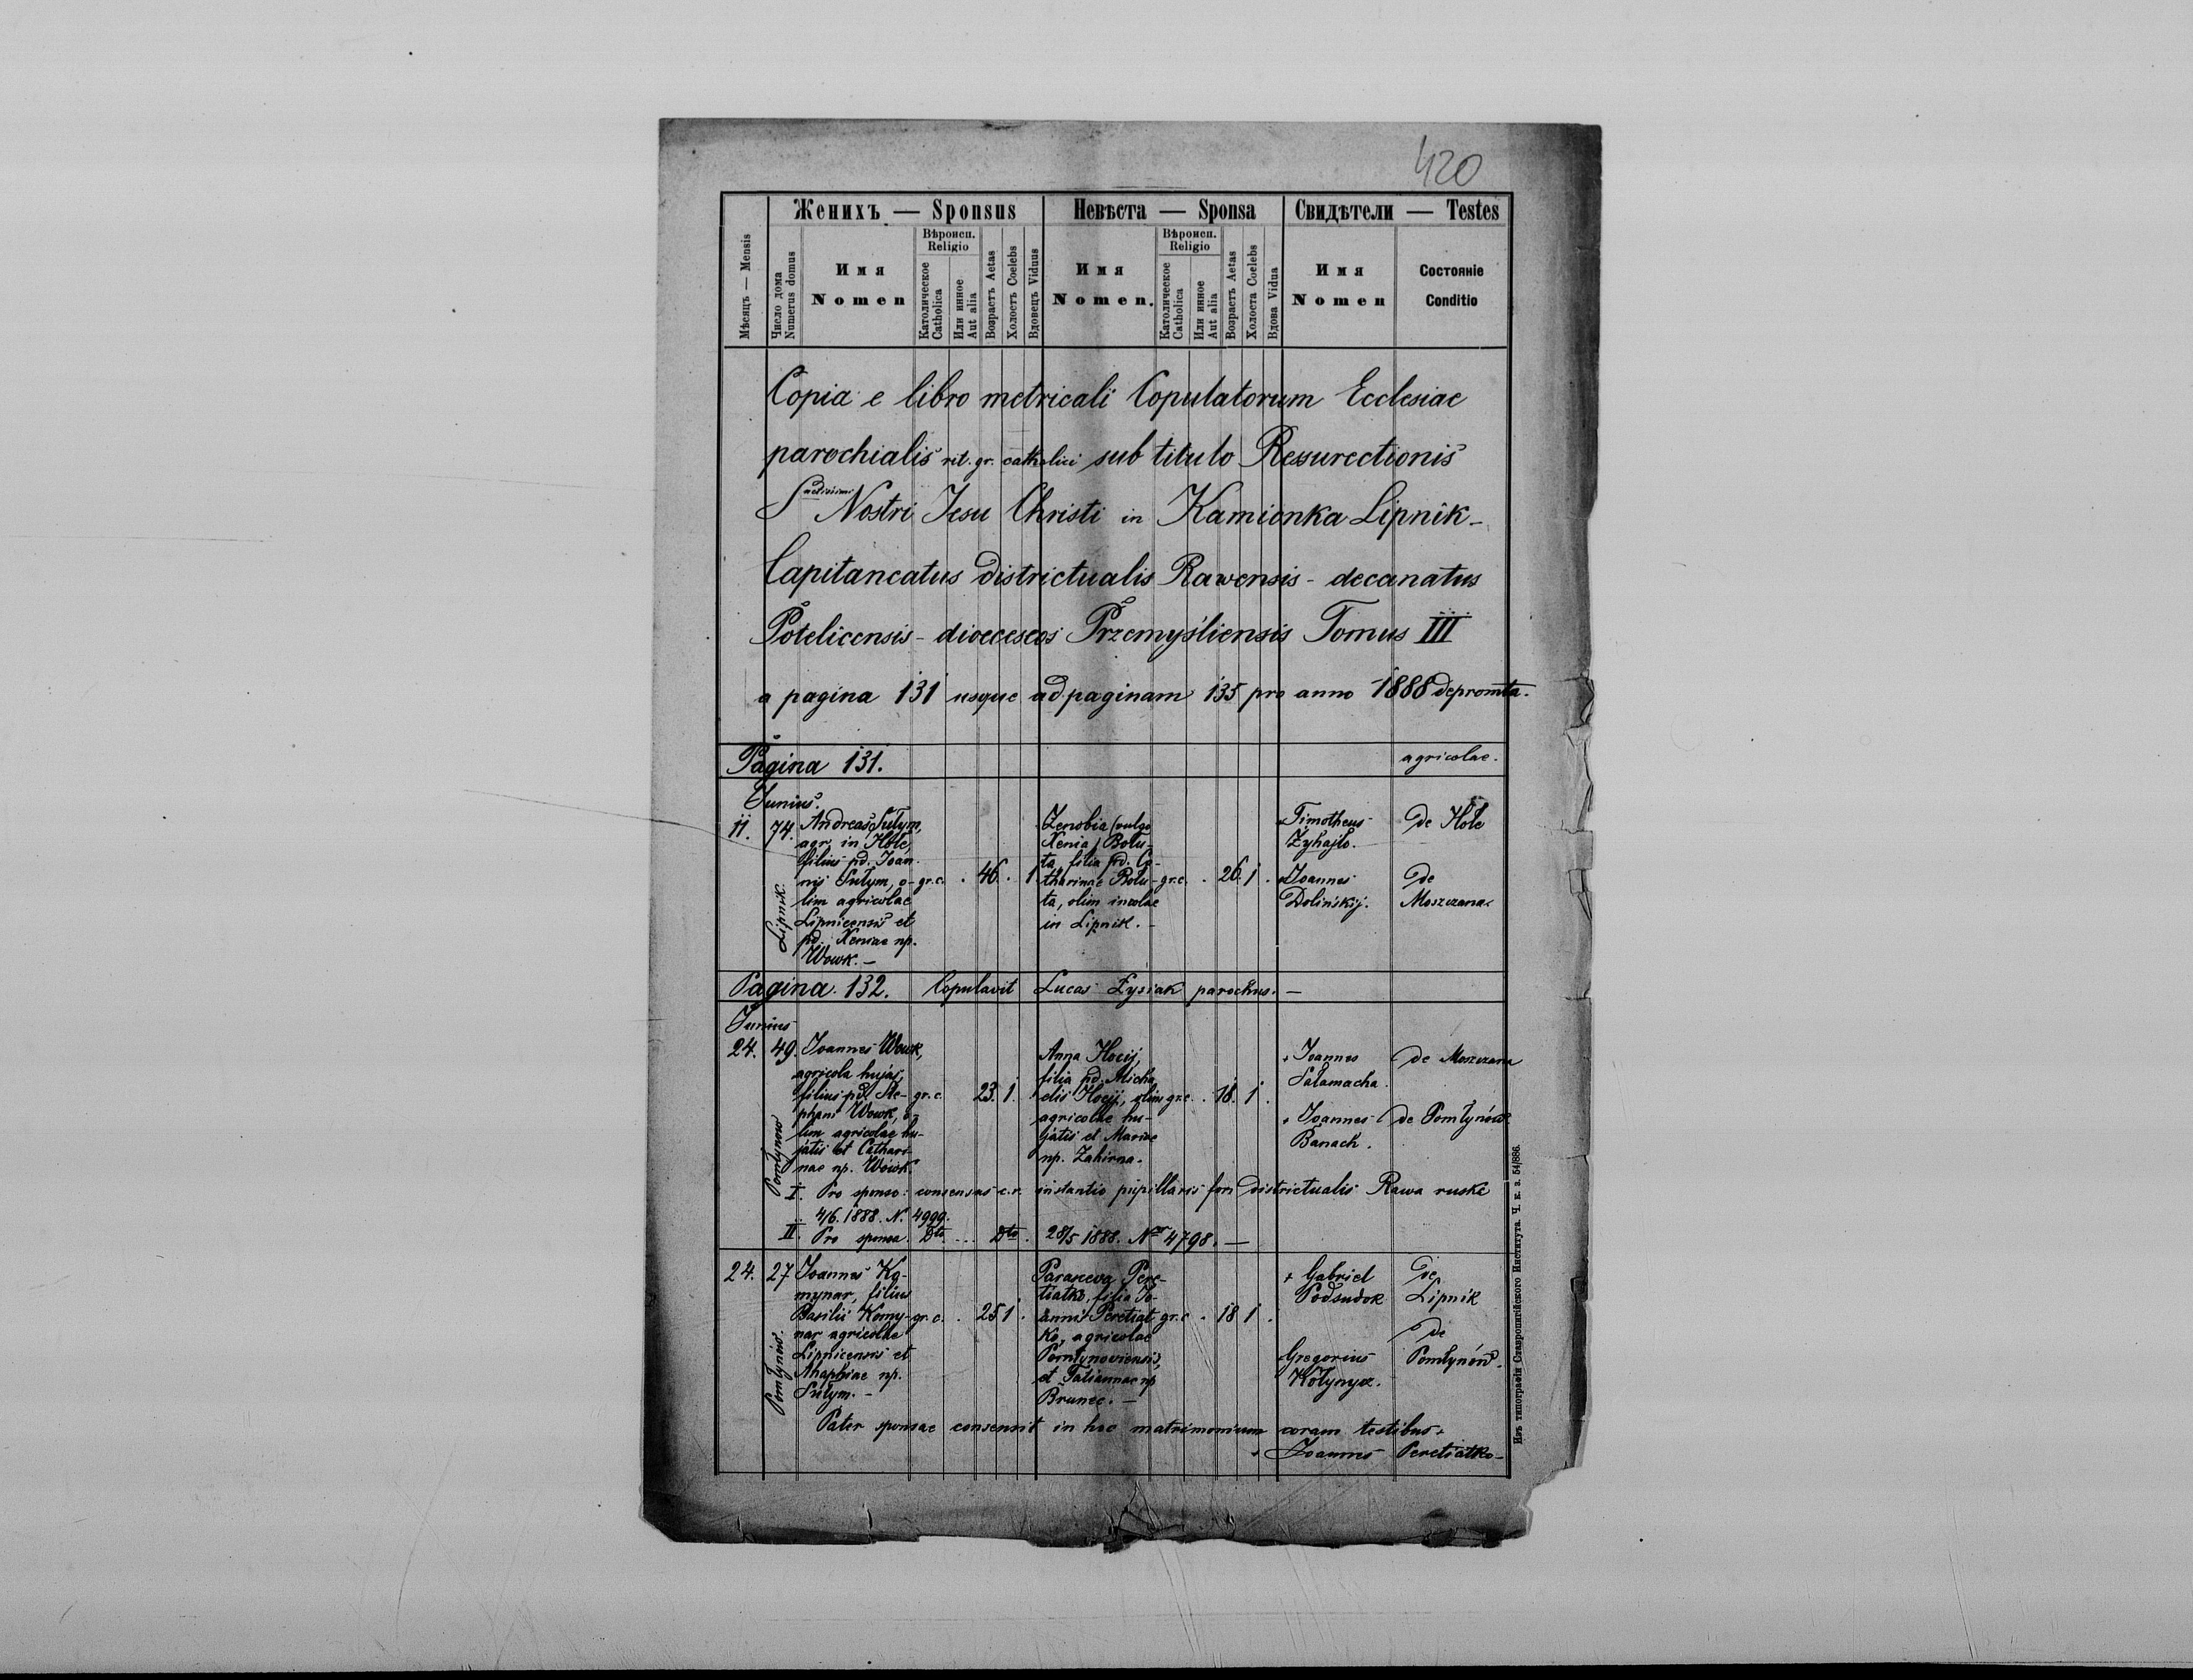 420
Женихъ — Sponsus Невѣста — Sponsa Свидѣтели — Testes
Мѣсяцъ — Mensis
Число дома
Numerus domus
Имя
Nomen
Вѣроисп.
Religio
Католическое
Catholica
Или инное
Aut alia
Возрастъ Aetas
Холостъ Coelebs
Вдовецъ Viduus
Имя
Nomen.
Вѣроисп.
Religio
Католическое
Catholica
Или инное
Aut alia
Возрастъ Aetas
Холоста Coelebs
Вдова Vidua
Имя
Nomen
Состояніе
Conditio
Copia e libro metricali Copulatorum Ecclesiae
parochialis rit. gr. catholici sub titulo Resurectionis
Nostri Jesu Christi in Kamionka Lipnik-
Capitaneatus districtualis Rawensis - decanatus
Potelicensis - dioeceseos Przemysliensis Tomus III
a pagina 131 usque ad paginam 135 pro anno 1888 depromta.
Pagina 131. agricolae.
Junius.
11. 74.
Lipnik.
Andreas Sułym,
agr. in Hole,
filius pd. Joan-
nis Sułym, o-
lim agricolae
Lipnicensis et
pd. Xeniae np.
Wowk. —
gr. c. . 46. 1
Zenobia (vulgo
Xenia) Bolu-
ta, filia pd. Ca-
tharinae Bolu-
ta, olim incolae
in Lipnik. -
gr. c. . 26. 1 .
Timotheus
Zyhajło.
de Hole
Joannes
Dolinskij.
de
Moszczana
Pagina 132. Copulavit Lucas Łysiak parochus. —
Junius
24. 49.
Pomłynow
Joannes Wowk,
agricola hujas,
filius pd. Ste-
phani Wowk, o-
lim agricolae hu-
jatis et Cathari-
nae np. Wowk.
gr. c. 23. 1.
Anna Hocij,
filia pd. Micha-
elis Hocij, olim
agricolae hu-
jatis et Mariae
np. Zahirna.
gr. c. . 18. 1 .
+ Joannes
Sałamacha.
de Moszczana
+ Joannes
Banach.
de Pomłynów
I. Pro sponso: consensus c. r. instantio pupillaris fori districtualis Rawa ruska
4/6. 1888. N. 4999.
II. Pro sponsa. Dto ... Dto. 28/5 1888. Nr 4798. —
24. 27
Pomłynów.
Joannes Ko-
mynar, filius
Basilii Komy-
nar agricolae
Lipnicensis et
Ahaphiae np.
Sułym. -
gr. c. . 25 1 .
Parasceva Pere-
tiatko, filia Jo-
annis Peretiat-
ko, agricolae
Pomłynoviensis,
et Tatiannae np
Brunec. —
gr. c . 18 1 .
+ Gabriel
Podsudok
de
Lipnik
Gregorius
Kołynycz.
de
Pomłynów.
Pater sponsae consensit in hoc matrimonium coram testibus +
+ Joannes Peretiatko -
Изъ типографіи Ставропигійского Института. Ч. к. з. 54/886.